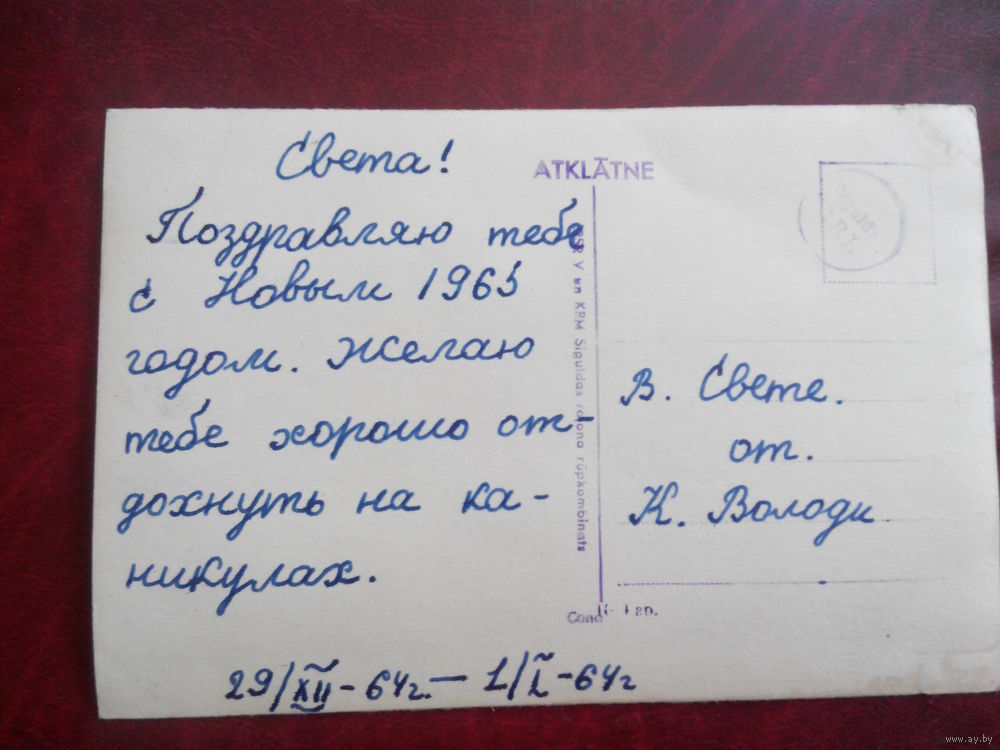 Света!
Поздравляю тебе
с Новым 1965
годом. Желаю
тебе хорошо от-
дохнуть на ка-
никулах.
29/XII-64г.— 1/I-64г
ATKLĀTNE
KRM Siguldas rajona rūpkombināts
В. Свете.
от.
К. Володи
Cena
www.ay.by